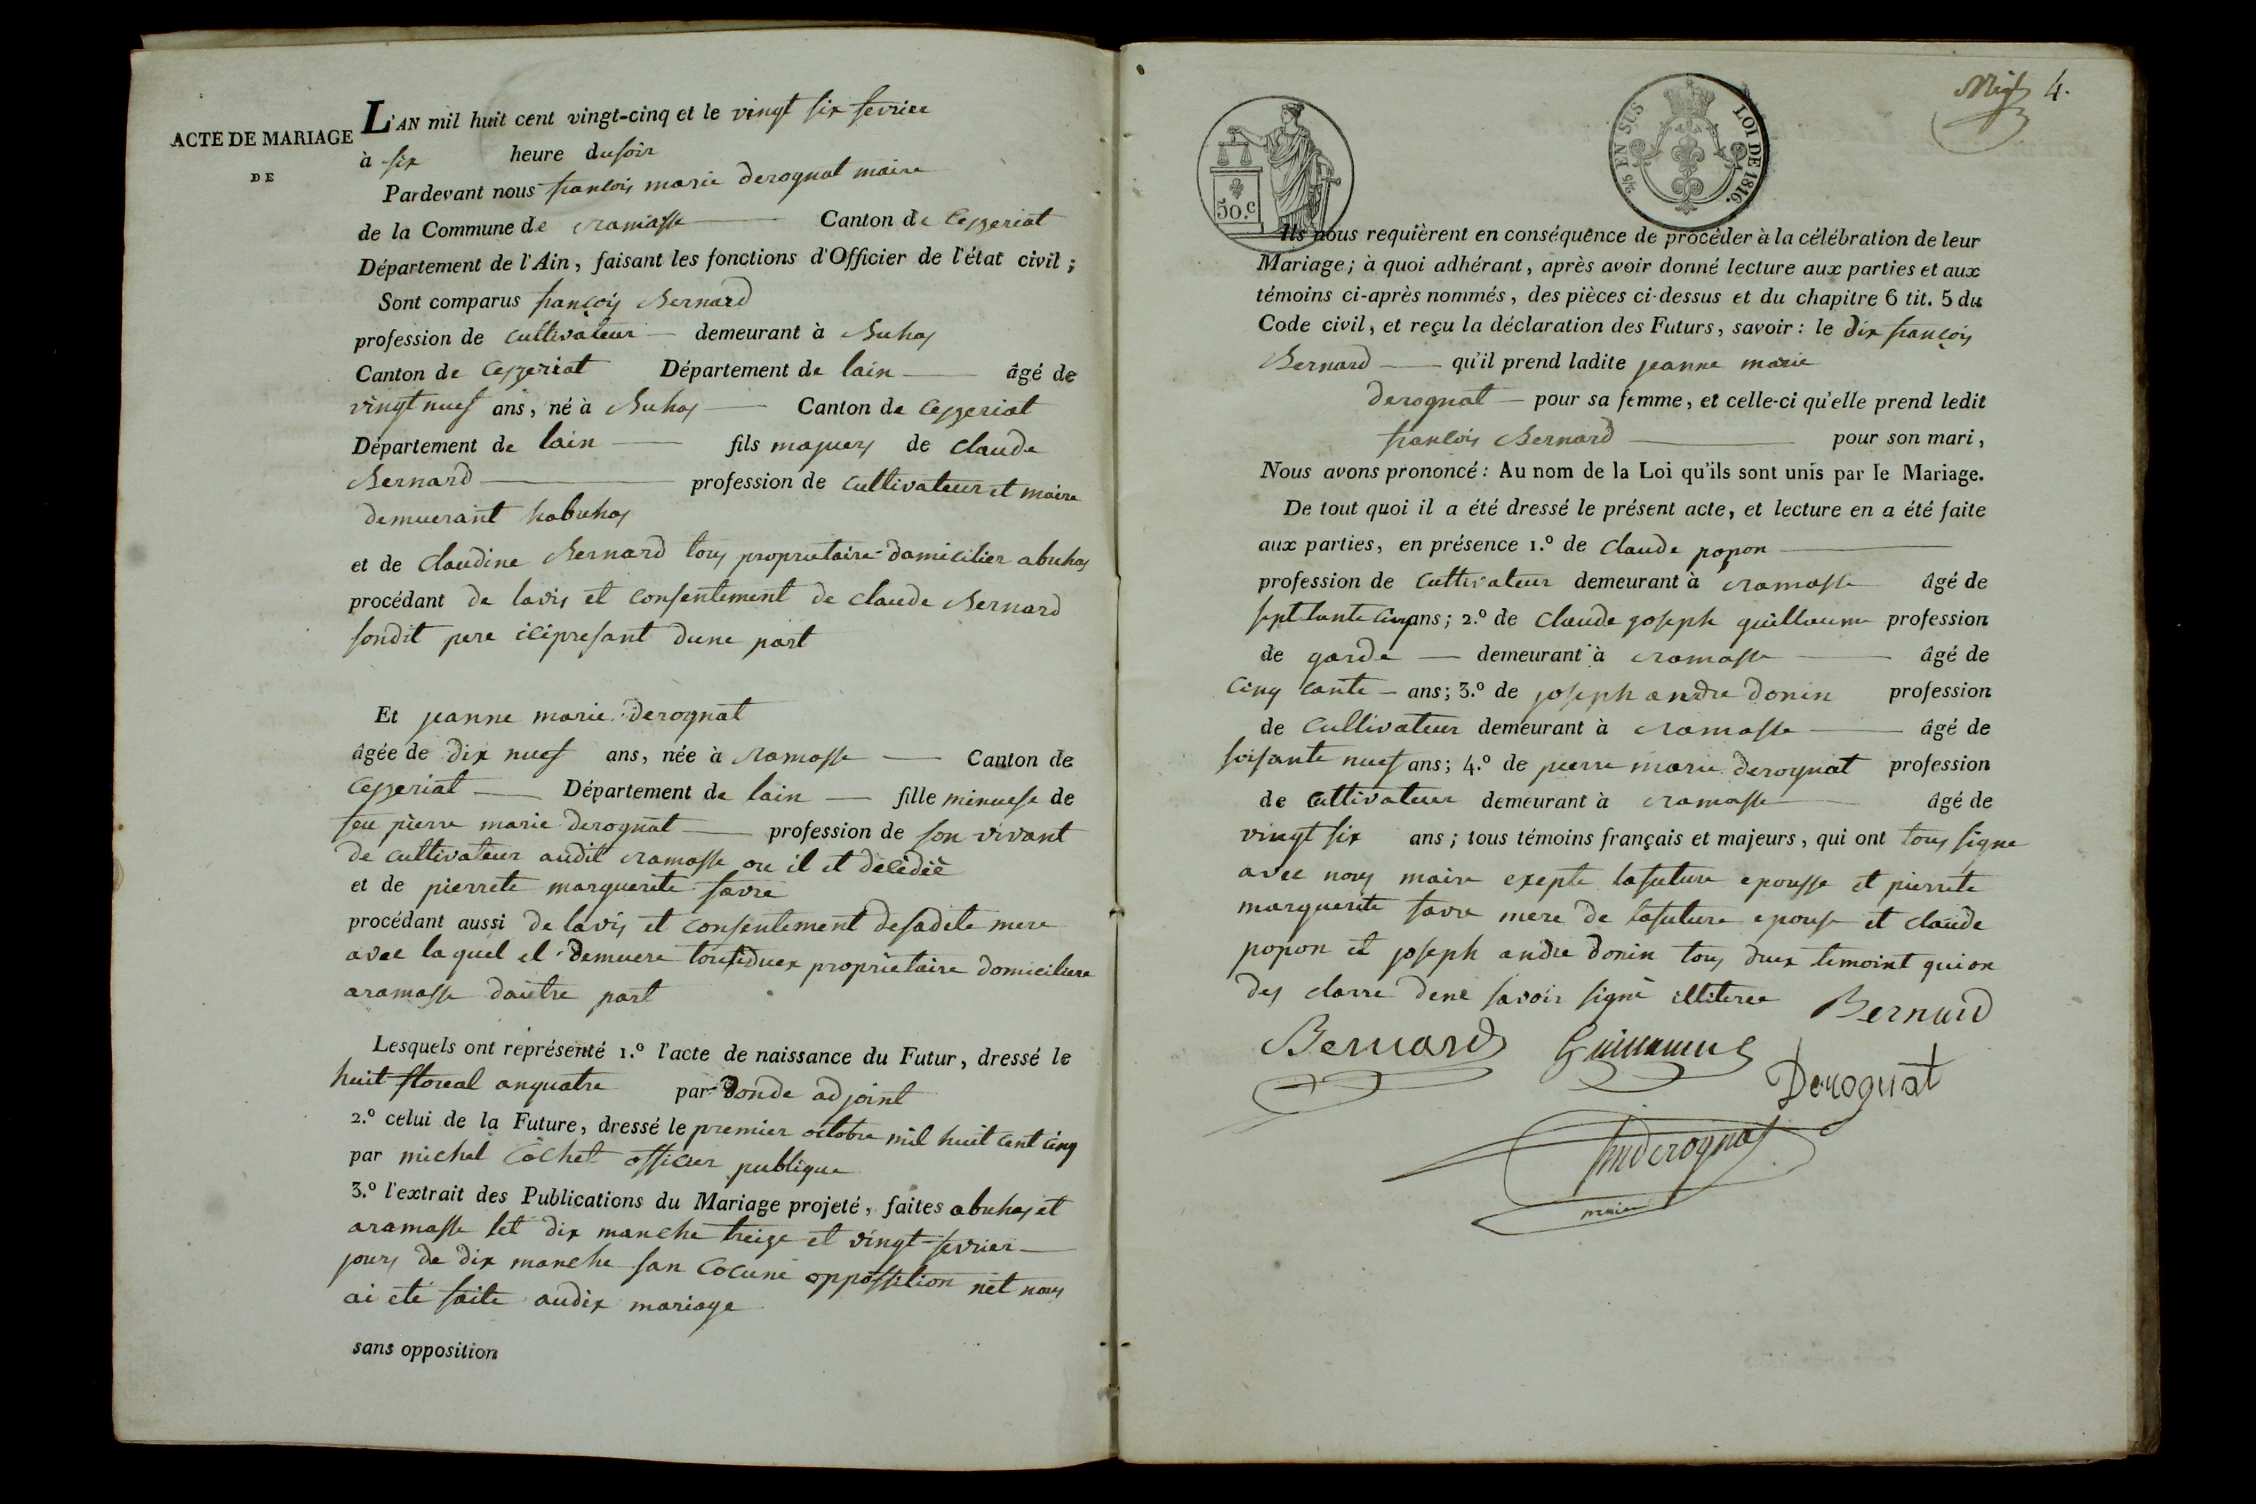 ACTE DE MARIAGE
DE
L'AN mil huit cent vingt-cinq et le vingt six fevrier
à six heure dusoir
Pardevant nous francois marie derognat maire
de la Commune de ramasse Canton de Ceyzeriat
Département de l'Ain, faisant les fonctions d'Officier de l'état civil ;
Sont comparus françois Bernard
profession de cultivateur demeurant à Buhas
Canton de Ceyzeriat Département de lain âgé de
vingt nuef ans, né à Buhas Canton de Ceyzeriat
Département de lain fils majuers de claude
Bernard profession de cultivateur et maire
demuerant habuhas
et de claudine Bernard tous proprietaire domicilier abuhas
procédant de lavis et consentement de claude Bernard
sondit pere icipresant dune part
Et jeanne marie derognat
âgée de dix nuef ans, née à ramasse Canton de
Ceyzeriat Département de lain fille minuese de
feu pierre marie derognat profession de son vivant
de cultivateur audit ramasse ou il et decédèe
et de pierrete marguerite favre
procédant aussi de lavis et consentement desadete mere
avec laquel el demuere proprietaire domiciliere
aramasse dautre part
Lesquels ont représenté 1.° l'acte de naissance du Futur, dressé le
huit floreal anquatre par donde adjoint
2.° celui de la Future, dressé le premier octobre mil huit cent cinq
par michel Cochet officier publique
3.° l'extrait des Publications du Mariage projeté, faites abuhas et
aramasse let dix manche treize et vingt fevrier
jours de dix manche san cocune oppossition net nous
ai eté faite audix mariage
sans opposition
4.
50.c
EN SUS
LOI DE 1816.
Ils nous requièrent en conséquence de procéder à la célébration de leur
Mariage; à quoi adhérant, après avoir donné lecture aux parties et aux
témoins ci-après nommés, des pièces ci-dessus et du chapitre 6 tit. 5 du
Code civil, et reçu la déclaration des Futurs, savoir: le dix françois
Bernard qu'il prend ladite jeanne marie
derognat pour sa femme, et celle-ci qu'elle prend ledit
francois Bernard pour son mari,
Nous avons prononcé: Au nom de la Loi qu'ils sont unis par le Mariage.
De tout quoi il a été dressé le présent acte, et lecture en a été faite
aux parties, en présence 1.° de claude popon
profession de cultivateur demeurant à ramasse âgé de
septtante cinq ans; 2.° de claude joseph guillaume profession
de garde demeurant à ramasse âgé de
cinq cante ans; 3.° de joseph andre donin profession
de cultivateur demeurant à ramasse âgé de
soisante nuef ans; 4.° de pierre marie derognat profession
de cultivateur demeurant à ramasse âgé de
vingt six ans; tous témoins français et majeurs, qui ont tous signe
avec nous maire exepte lafuture epousse et pierrete
marguerite favre mere de lafuture epouse et claude
popon et joseph andre donin tous duex temoint quion
des clarre dene savoir signè illiteree Bernard
Bernard Guillaume
Derognat
fmderognat
maire